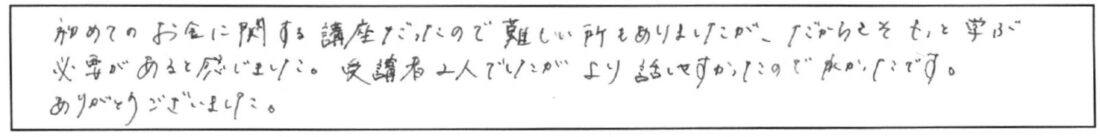 初めてのお金に関する講座だったので難しい所もありましたが、だからこそもっと学ぶ
必要があると感じました。受講者2人でしたがより話しやすかったので良かったです。
ありがとうございました。